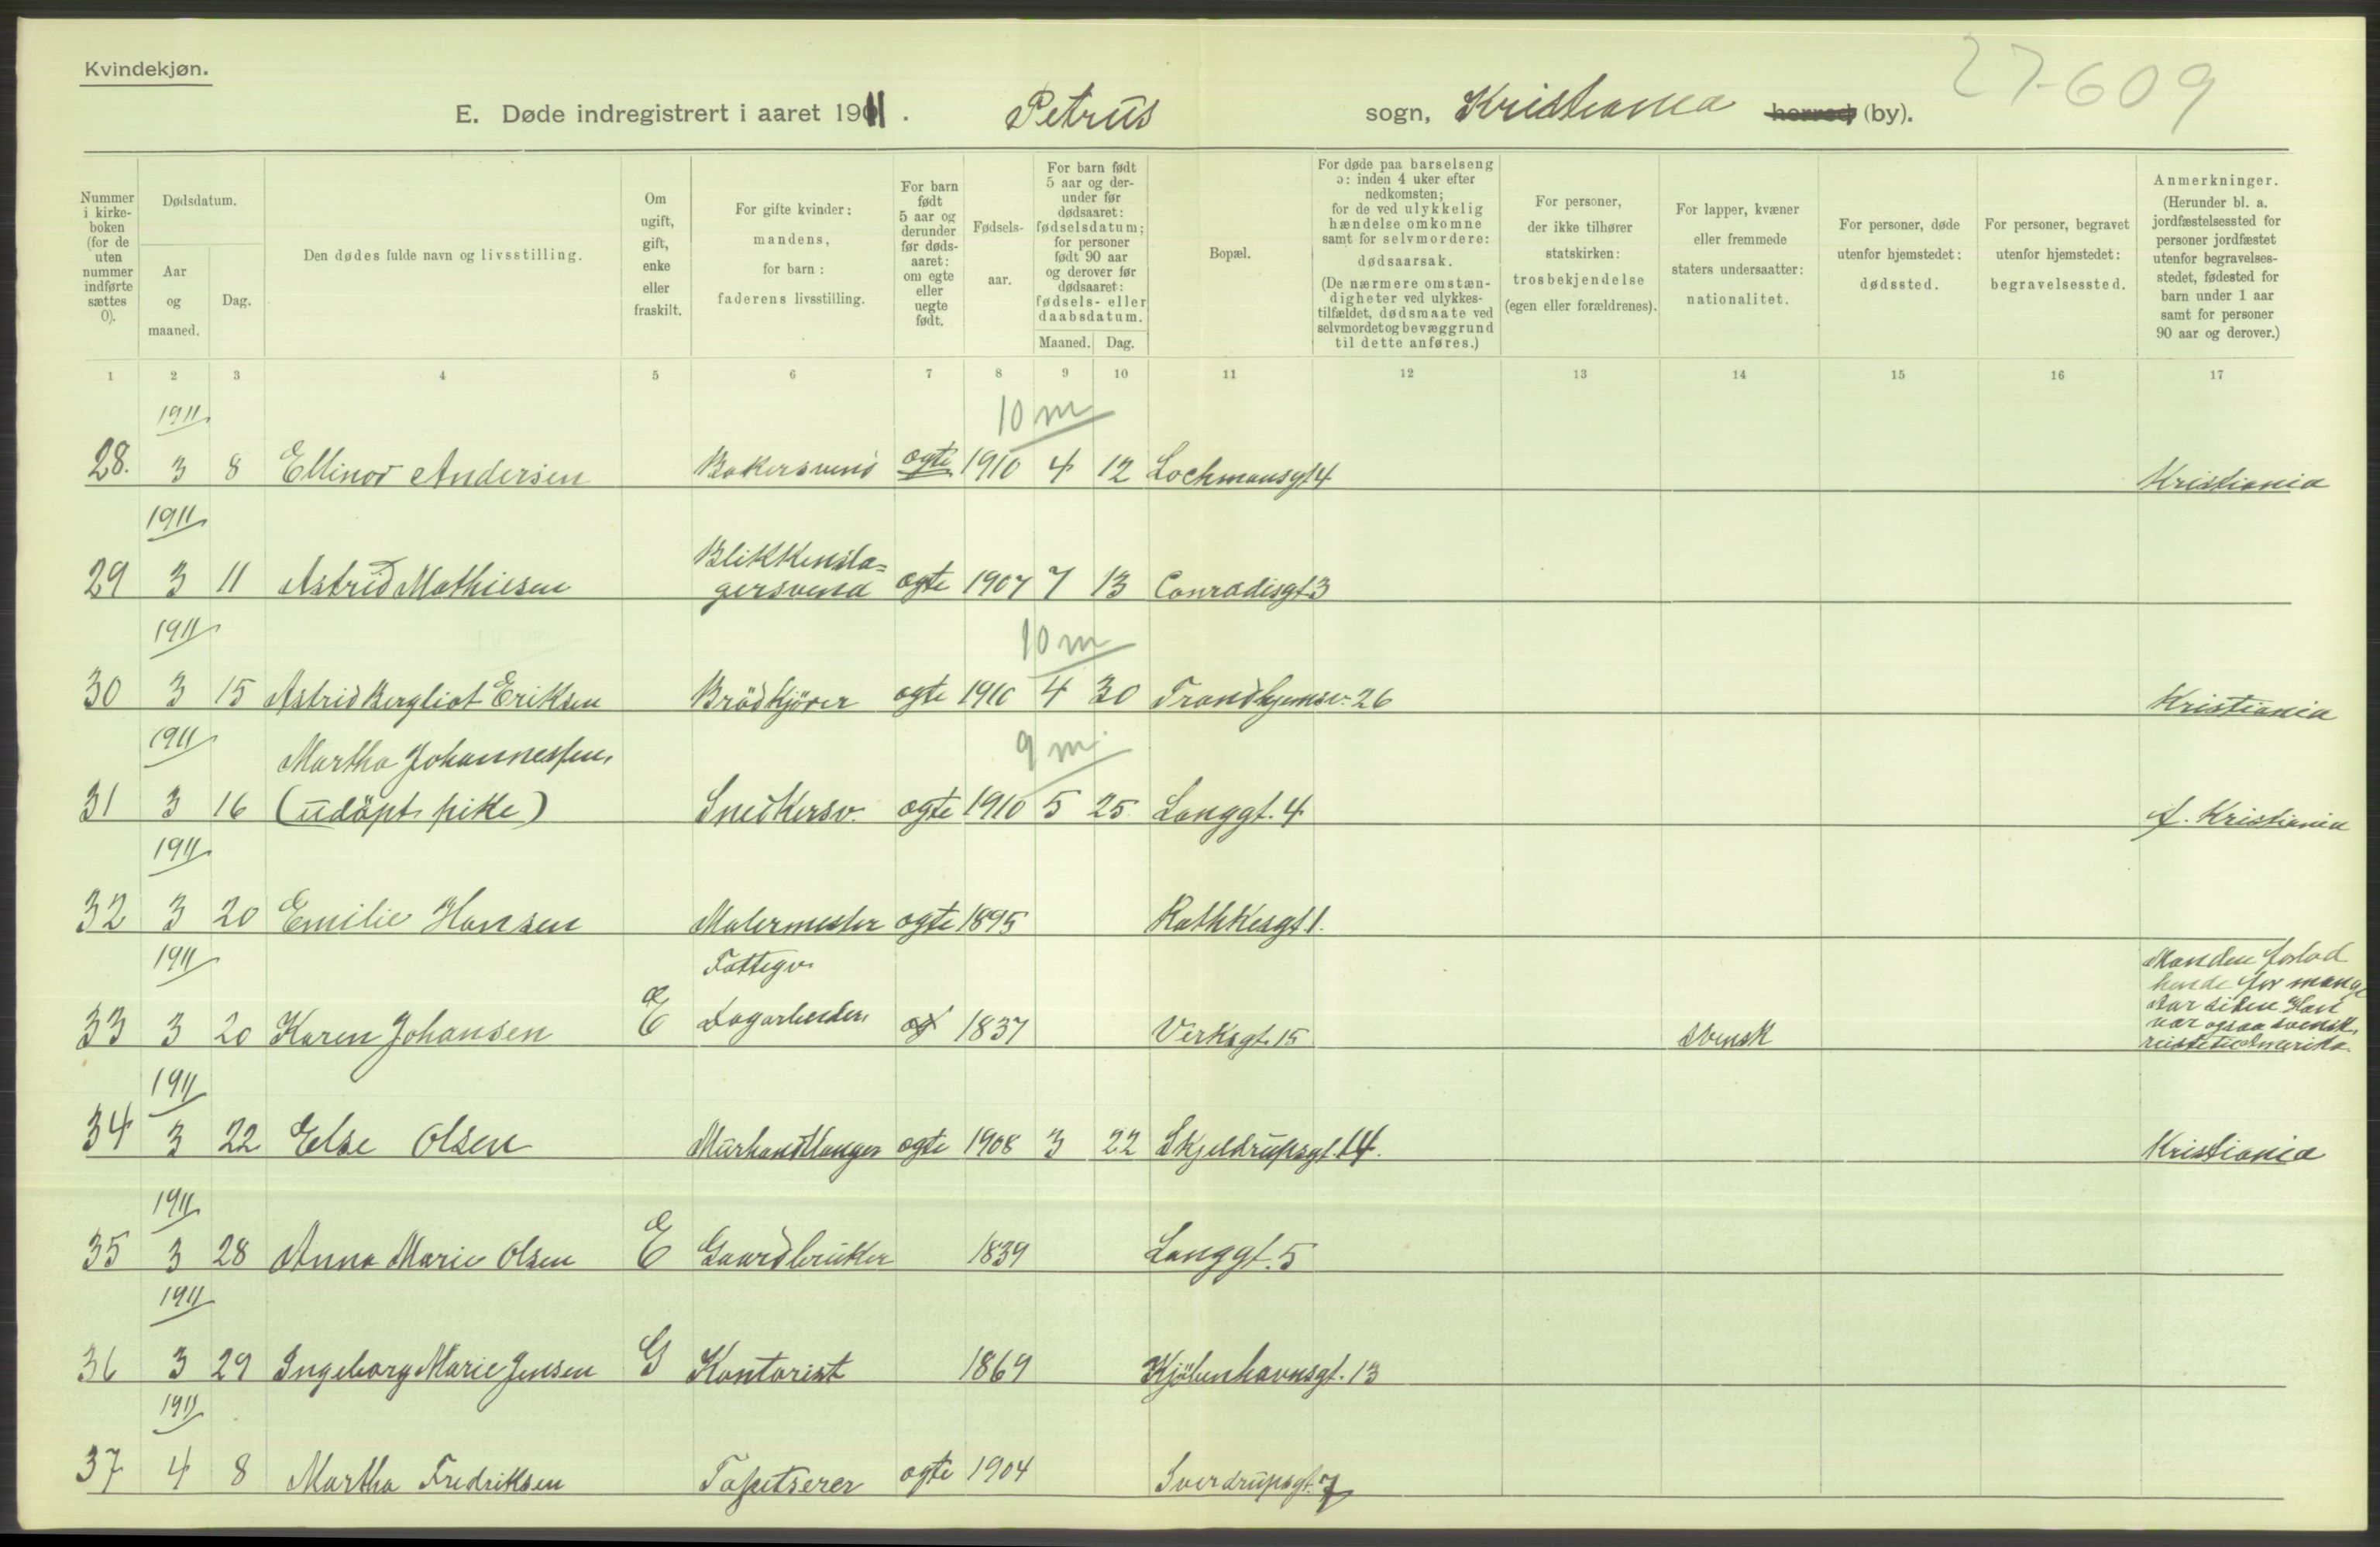 27-609
Kvindekjøn.
E. Døde indregistrert i aaret 1911. Petrus sogn, Kristiania herred (by).
Nummer i kirkeboken (for de uten nummer indførte sættes 0).
Dødsdatum.
Aar og maaned.
Dag.
Den dødes fulde navn og livsstilling.
Om ugift, gift, enke eller fraskilt.
For gifte kvinder: mandens, for barn: faderens livsstilling.
For barn født 5 aar og derunder før dødsaaret: om egte eller uegte født.
Fødselsaar.
For barn født 5 aar og derunder før dødsaaret: fødselsdatum; for personer født 90 aar og derover før dødsaaret: fødsels- eller daabsdatum.
Maaned. Dag.
Bopæl.
For døde paa barselseng ɔ: inden 4 uker efter nedkomsten; for de ved ulykkelig hændelse omkomne samt for selvmordere: dødsaarsak. (De nærmere omstændigheter ved ulykkestilfældet, dødsmaate ved selvmordet og bevæggrund til dette anføres.)
For personer, der ikke tilhører statskirken: trosbekjendelse (egen eller forældrenes).
For lapper, kvæner eller fremmede staters undersaatter: nationalitet.
For personer, døde utenfor hjemstedet: dødssted.
For personer, begravet utenfor hjemstedet: begravelsessted.
Anmerkninger. (Herunder bl. a. jordfæstelsessted for personer jordfæstet utenfor begravelsesstedet, fødested for barn under 1 aar samt for personer 90 aar og derover.)
1 2 3 4 5 6 7 8 9 10 11 12 13 14 15 16 17
1911 10 m
28. 3 8 Ellinor Andersen Bakersvend ægte 1910 4 12 Lochmansgt 4 Kristiania
1911
Blikkensla=
29 3 11 Astrid Mathiesen gersvend ægte 1907 7 13 Conradisgt 3
1911 10 m
30 3 15 Astrid Bergliot Eriksen Brödkjörer ægte 1910 4 30 Trondhjemsv. 26 Kristiania
1911 Martha Johannessen, 9 m.
31 3 16 (udöpt pike) Snedkersv. ægte 1910 5 25 Langgt. 4 A. Kristiania
1911
32 3 20 Emilie Hansen Malermester ægte 1895 Rathkesgt 1.
1911 Fattigv.
33 3 20 Karen Johansen E Dagarbeider, 1837 Verksgt. 15 Svensk
Manden forlod
hende for mange
aar siden Han
var ogsaa svensk,
reiste til Amerika.
1911
34 3 22 Else Olsen Murhandlanger ægte 1908 3 22 Skjeldrupsgt. 14. Kristiania
1911
35 3 28 Anna Marie Olsen E Gaardbruker 1839 Langgt. 5
1911
36 3 29 Ingeborg Marie Jensen G Kontorist 1869 Kjöbenhavnsgt. 13
1911
37 4 8 Martha Fredriksen Tapetserer ægte 1904 Sverdrupsgt. 7